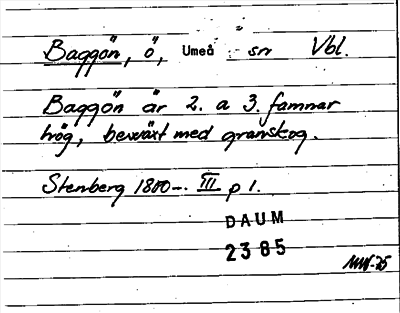 Baggön, ö, Umeå sn Vbl.
Baggön är 2. a 3. famnar
hög, bewäxt med granskog.
Stenberg 1800-. III p 1.
DAUM
2385